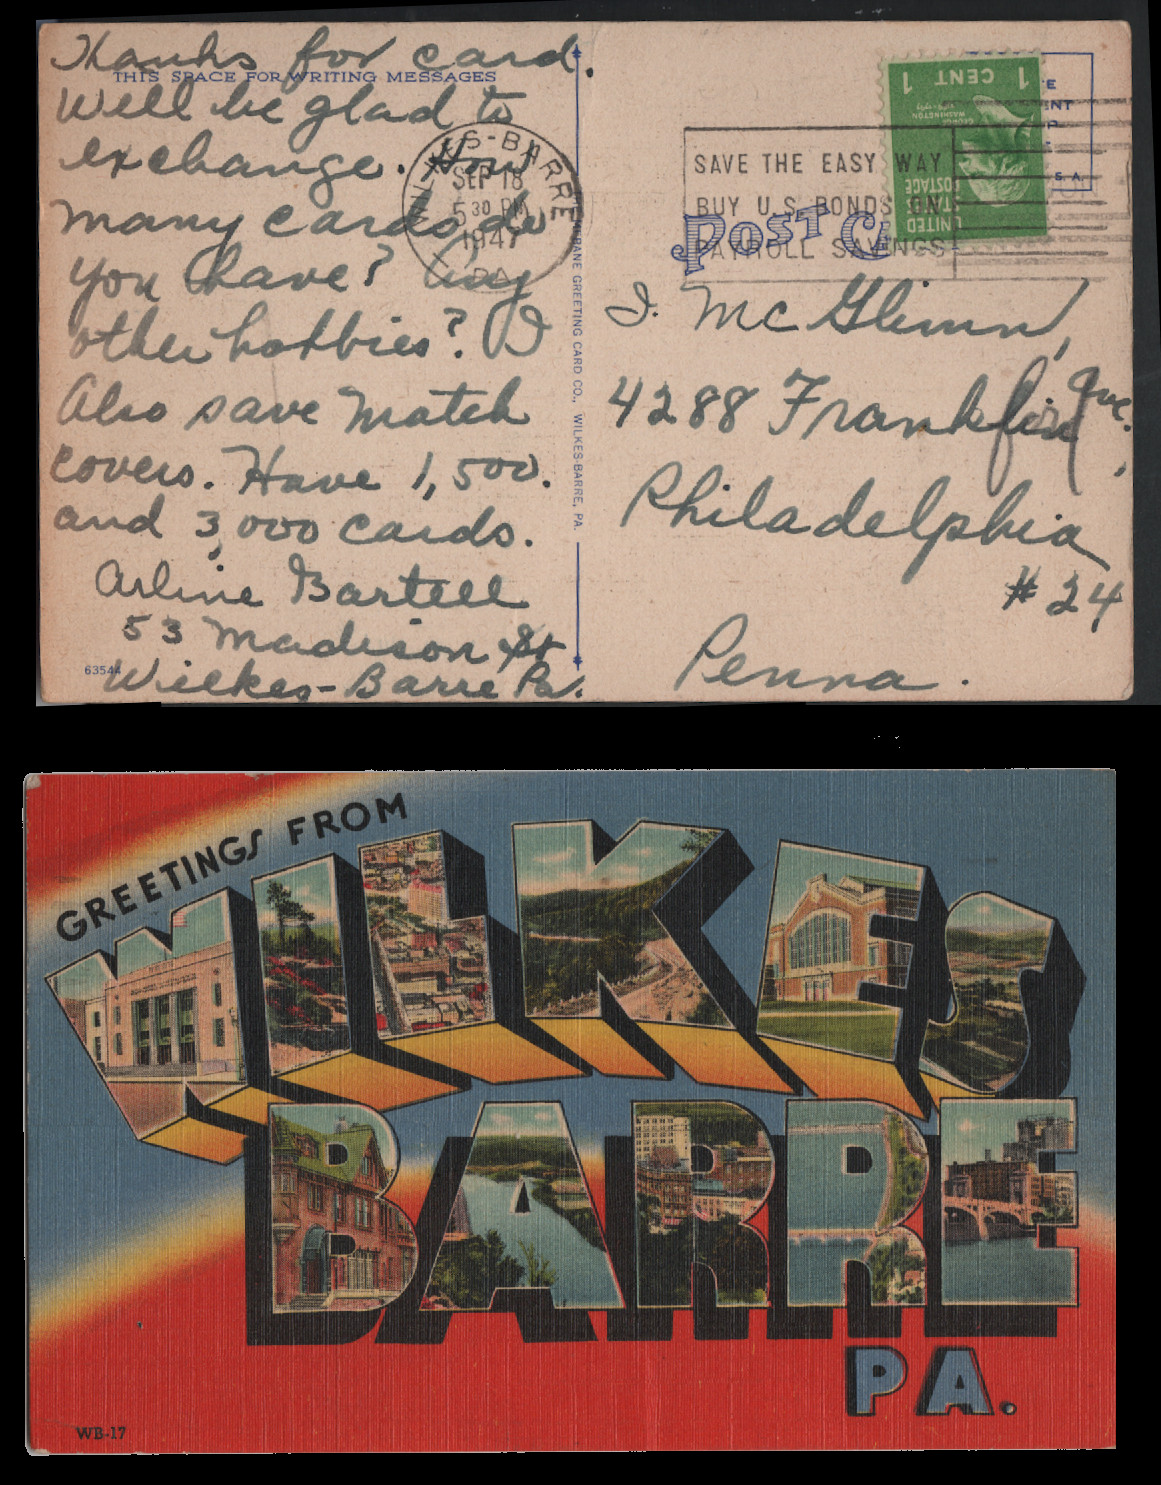 Thanks for card.
THIS SPACE FOR WRITING MESSAGES
Will be glad to
exchange. How
many cards do
you have? Any
other hobbies? I
Also save match
covers. Have 1,500.
and 3,000 cards.
Arline Bartell
53 Madison St
63544
Wilkes-Barre Pa.
WILKES-BARRE
SEP 18
5 30 PM
1947
PA.
WILKES-BARRE, PA.
GREETING CARD CO.,
SAVE THE EASY WAY
BUY U.S. BONDS ON
PAYROLL SAVINGS
POST CA
1 CENT 1
GEORGE
WASHINGTON
UNITED
STATES
POSTAGE
S. A.
I. McGlinn,
4288 Franklin Ave.,
Philadelphia
#24
Penna.
GREETINGS FROM
WILKES
BARRE
PA.
WB-17